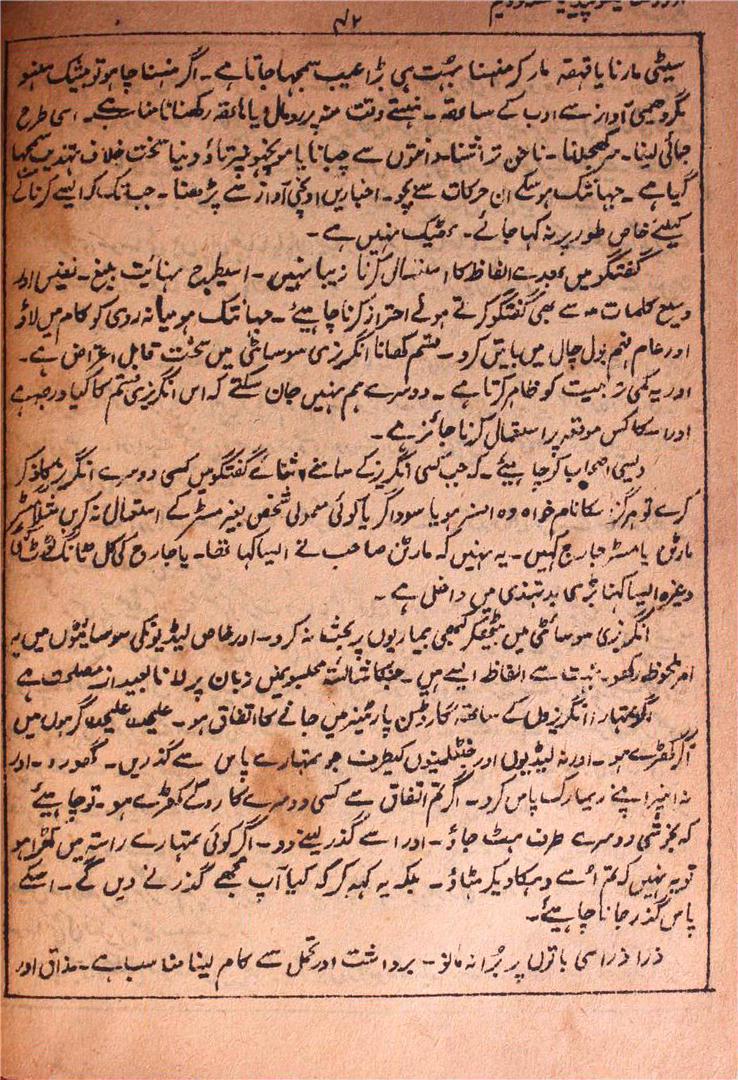 ۴۲
سیٹی مارنا یا قہقہہ مار کر ہنسنا بہت ہی بڑا عیب سمجہا جاتا ہے۔ اگر ہنسنا چاہو تو بیشک ہنسو
مگر دھیمی آواز سے ادب کے ساتھ۔ ہنستے وقت منہ پر رومال یا ہاتھ رکھنا مناسب ہے۔ اسی طرح
جمائی لینا۔ سر کھجلانا۔ ناخن تراشنا۔ دانتوں سے چبانا یا مونچھونپر تاؤ دینا سخت خلاف تہذیب سمجہا
گیا ہے۔ جہانتک ہو سکے ان حرکات سے بچو۔ اخباریں اونچی آواز سے پڑھنا۔ جب تک کہ ایسے کرنا کے
کیلئے خاص طور پر نہ کہا جائے۔ ٹھیک نہیں ہے۔
گفتگو میں بھدے الفاظ کا استعمال کرنا زیبا نہیں۔ اسیطرح نہائیت بلیغ۔ نفیس اور
وسیع کلمات سے بھی گفتگو کرتے ہوئے احتراز کرنا چاہیئے۔ جہانتک ہو میانہ روی کو کام میں لاؤ
اور عام فہم بول چال میں باتیں کرو۔ قسم کھانا انگریزی سوسائٹی میں سخت قابل اعتراض ہے۔
اور یہ کمی تربیت کو ظاہر کرتا ہے۔ دوسرے ہم نہیں جان سکتے کہ اس انگریزی قسم کا کیا درجہ ہے
اور اسکا کس موقعہ پر استعمال کرنا جائز ہے۔
دیسی اصحاب کو چاہیئے۔ کہ جب کسی انگریز کے سامنے اثنائے گفتگو میں کسی دوسرے انگریز کا ذکر
کرے تو ہرگز اسکا نام خواہ وہ افسر ہو یا سوداگر یا کوئی معمولی شخص بغیر مسٹر کے استعمال نہ کریں مثلاً مسٹر
مارٹن یا مسٹر جارج کہیں۔ یہ نہیں کہ مارٹن صاحب نے ایسا کہا تھا۔ یا جارج کی کل ٹانگ ٹوٹ گئی
وغیرہ ایسا کہنا بڑی بدتہذیبی میں داخل ہے۔
انگریزی سوسائٹی میں بیٹھکر کبھی بیماریوں پر بحث نہ کرو۔ اور خاص لیڈیونکی سوسائیٹوں میں یہ
امر ملحوظ رکھو۔ بہت سے الفاظ ایسے ہیں۔ جنکا شائستہ مجلسوں میں زبان پر لانا بعید از مصلحت ہے
اگر تمہارا انگریزوں کے ساتھ گارڈن پارٹیز میں جانے کا اتفاق ہو۔ علیحدہ علیحدہ گرہوں میں
اگر کھڑے ہو۔ اور نہ لیڈیوں اور جنٹلمینوں کیطرف جو تمہارے پاس سے گذریں۔ گھورو۔ اور
نہ انپر اپنے ریمارک پاس کرو۔ اگر تم اتفاق سے کسی دوسرے کا روکے کھڑے ہو۔ تو چاہیئے
کہ بخوشی دوسرے طرف ہٹ جاؤ۔ اور اسے گذر لینے دو۔ اگر کوئی تمہارے راستہ میں کھڑا ہو
تو یہ نہیں کہ تم اُسے دہکا دیکر ہٹاؤ۔ بلکہ یہ کہہ کر کہ کیا آپ مجھے گذرنے دیں گے۔ اسکے
پاس گذر جانا چاہیئے۔
ذرا ذرا سی باتوں پر بُرا نہ مانو۔ برداشت اور تحمل سے کام لینا مناسب ہے۔ مذاق اور